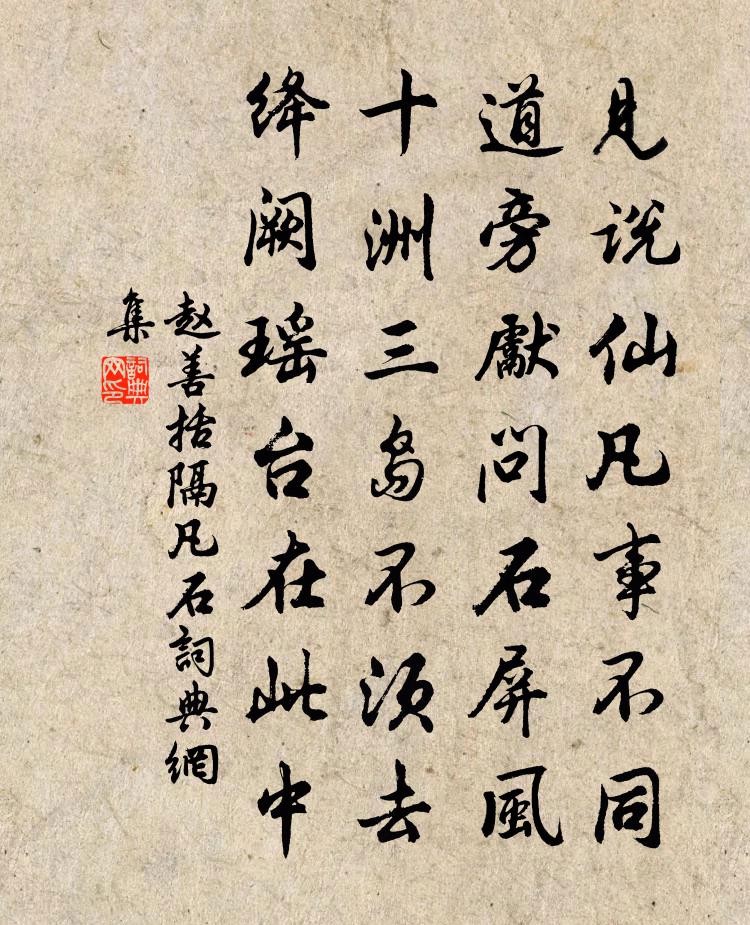 見说仙凡事不同
道旁獻问石屏風
十洲三岛不须去
绛阙瑶台在此中
赵善括隔凡石詞典網
集
詞典
网印